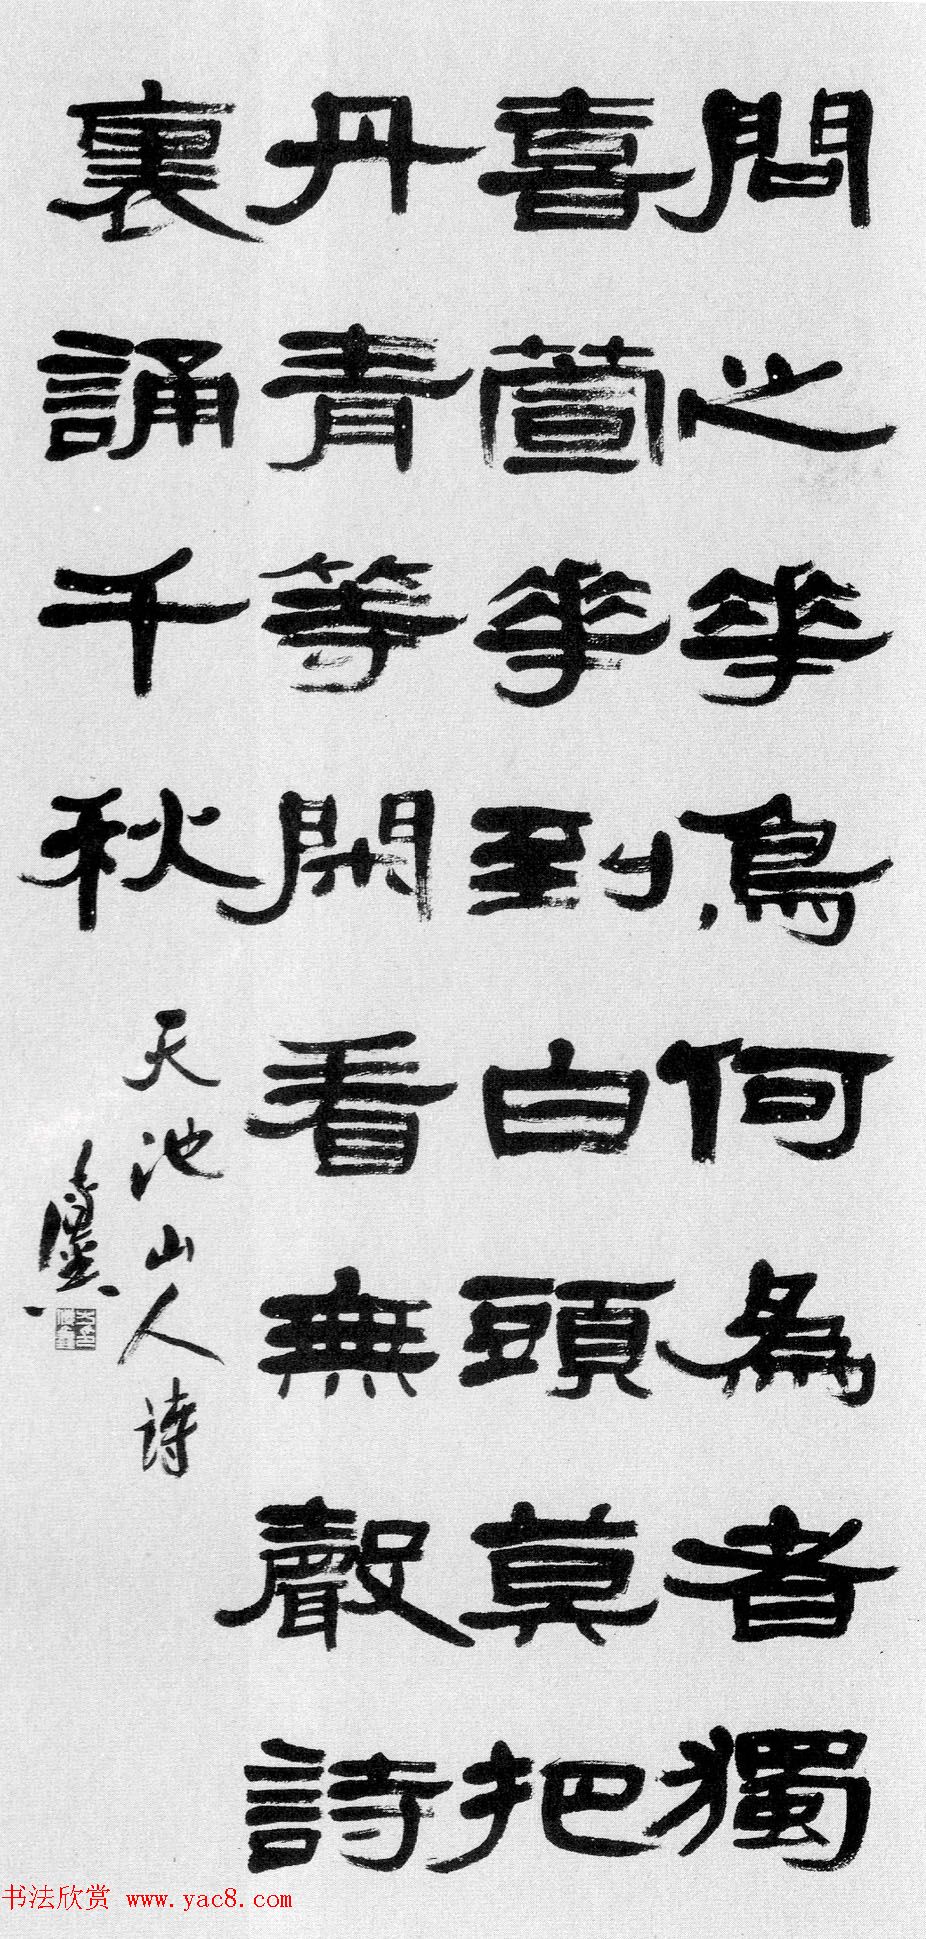 問之花鳥何為者獨
喜萱花到白頭莫把
丹青等閒看無聲詩
裏誦千秋
天池山人詩
书法欣赏 www.yac8.com